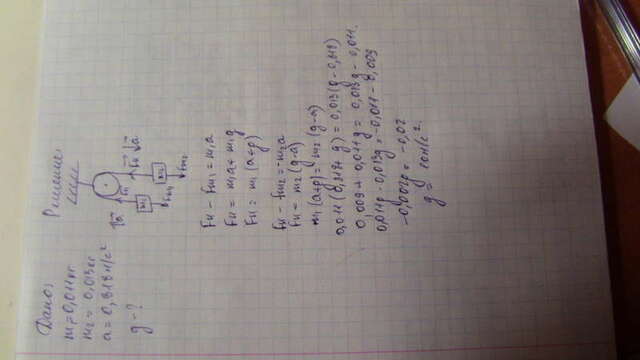 Дано:
m₁=0,011кг
m₂ = 0,013кг
a = 0,819м/с²
g - ?
Решение:
m₁
m₂
Fн - Fm₁ = m₁a
Fн = m₁a + m₁g
Fн = m₁(a+g)
Fн - Fm₂ = -m₂a
Fн = m₂(g-a)
m₁(a+g) = m₂(g-a)
0,011(0,819+g) = 0,013(g-0,819)
0,009 + 0,011g = 0,013g - 0,011.
0,011g - 0,013g = -0,011 - 0,009
-0,002g = -0,02
g = 10м/с².